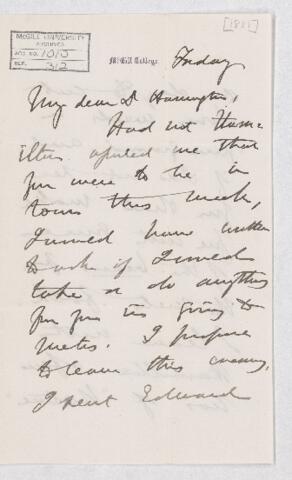 [1881]
McGILL UNIVERSITY
ARCHIVES
ACC. NO. 1015
REF.
McGill College
Friday
My dear Dr Harrington,
Had not Ham-
ilton me that
you were to be in
town this week,
I would have written
to ask if I could
take or do anything
for you in going to
Metis. I propose
to leave this evening.
I sent Edward